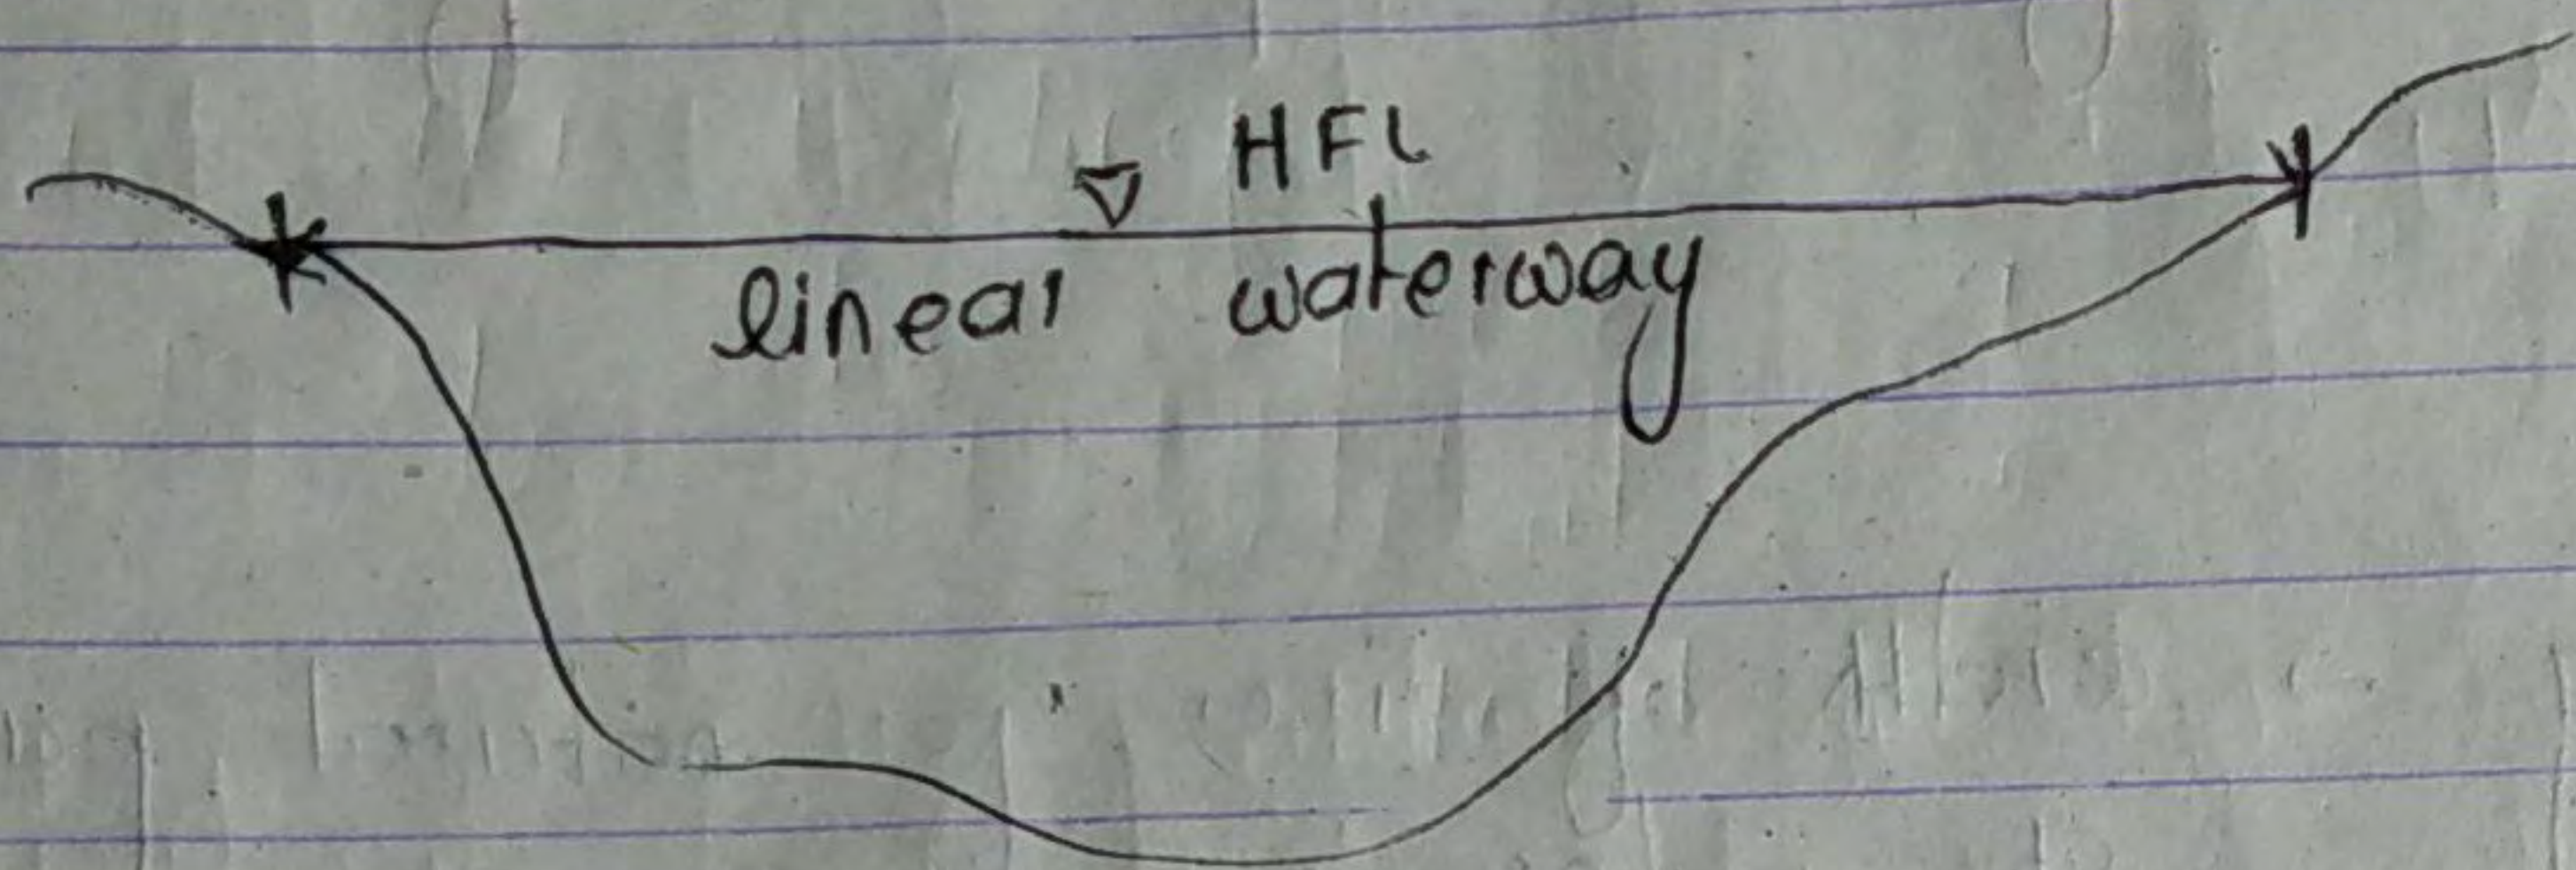 HFL
linear waterway